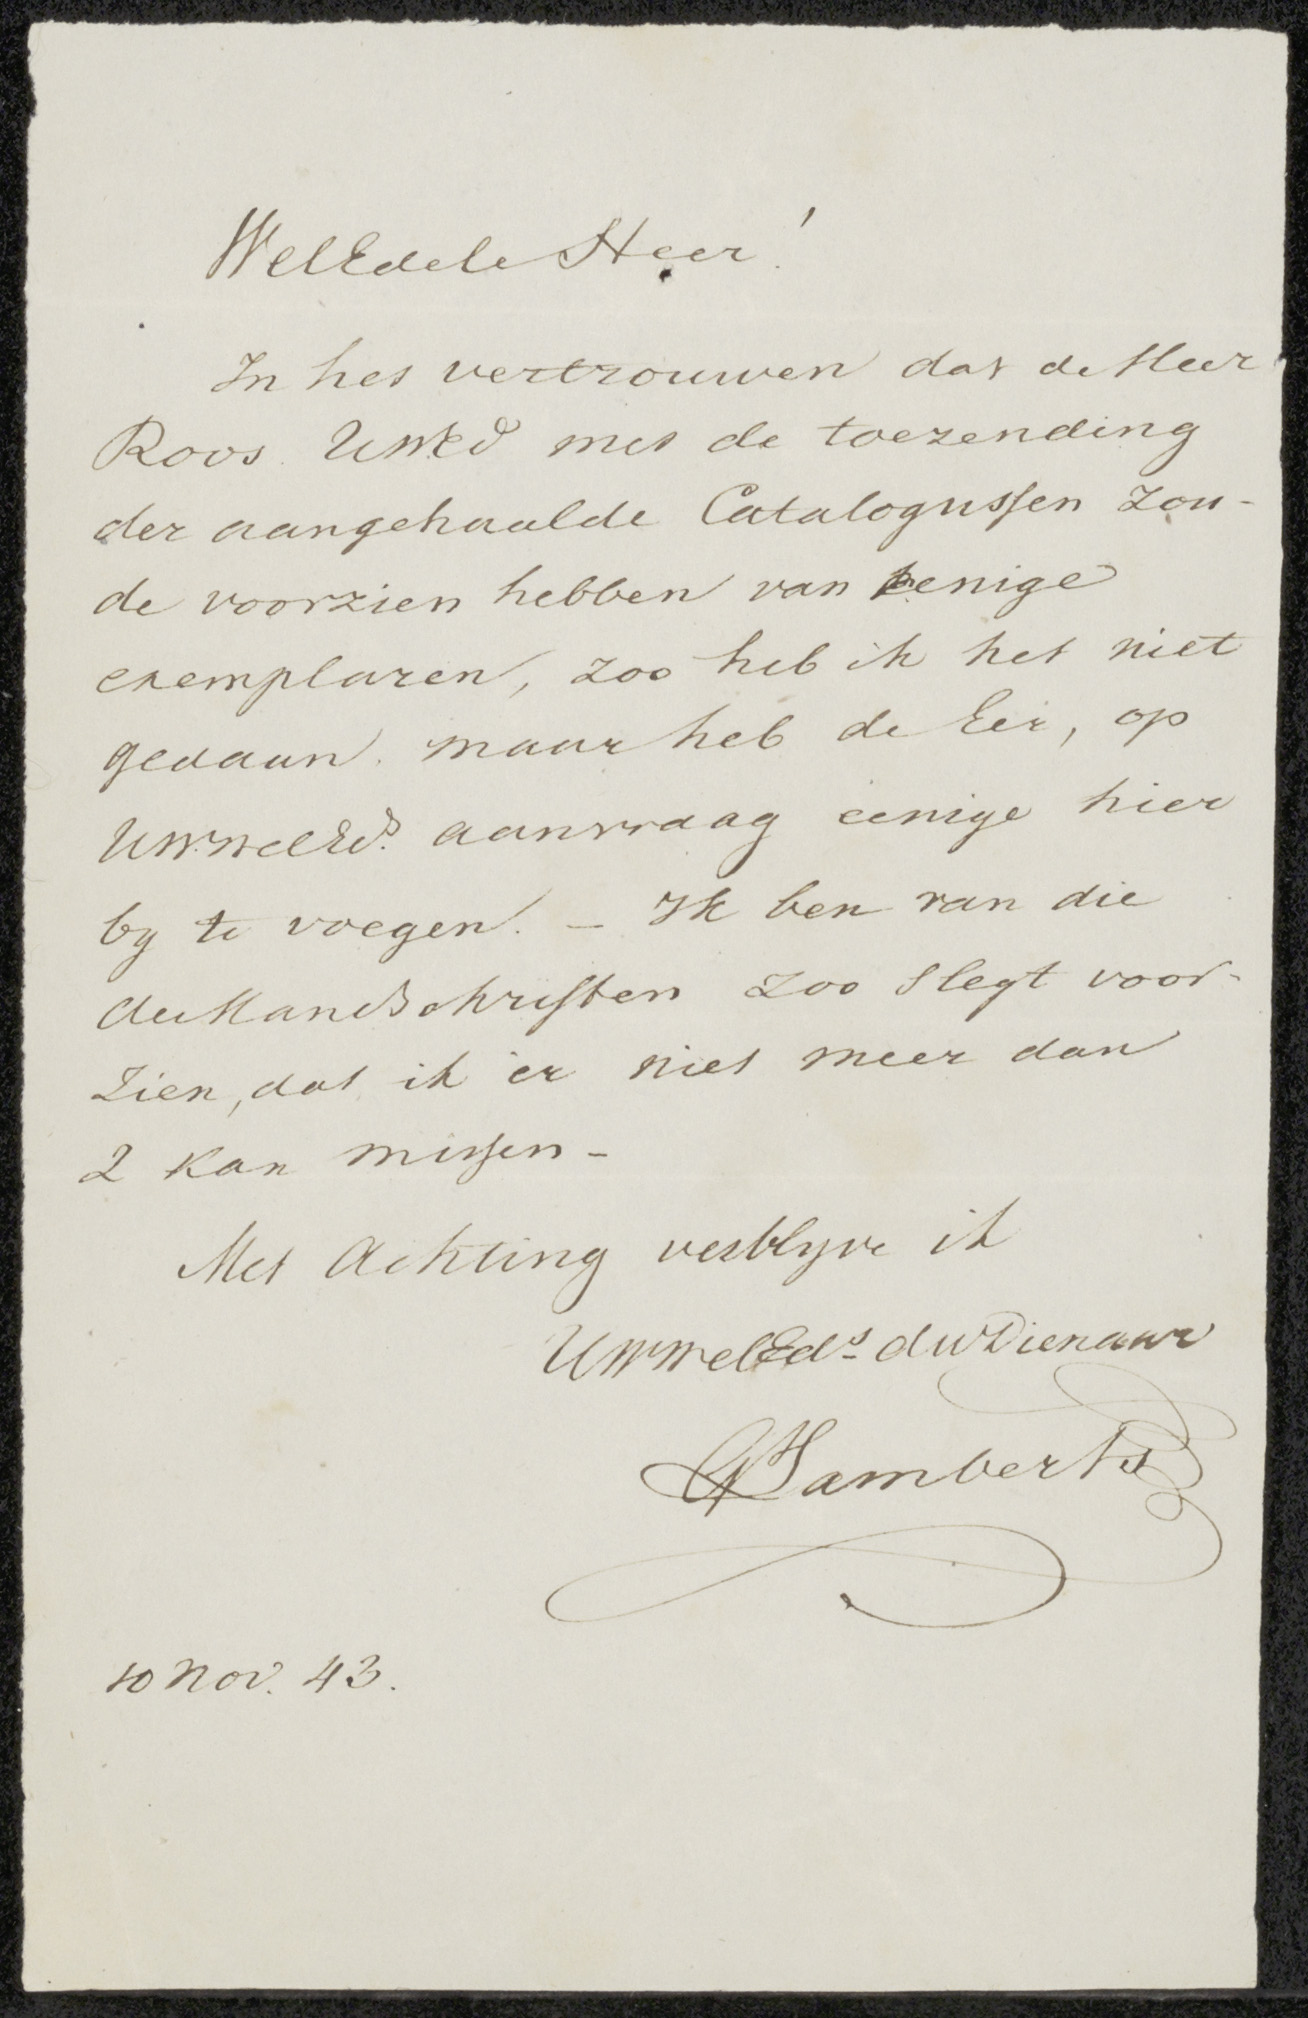 WelEdele Heer!
In het vertrouwen dat de Heer
Roos UWEd met de toezending
der aangehaalde Catalogussen zou-
de voorzien hebben van eenige
exemplaren, zoo heb ik het niet
gedaan. maar heb de Eer, op
UwWelEds. aanvraag eenige hier
by te voegen. - Ik ben van die
Handschriften zoo slegt voor-
zien, dat ik er niet meer dan
2 kan missen -
Met Achting verblyve ik
UwWelEds. dw Dienaar
G Lamberts
10 Nov. 43.